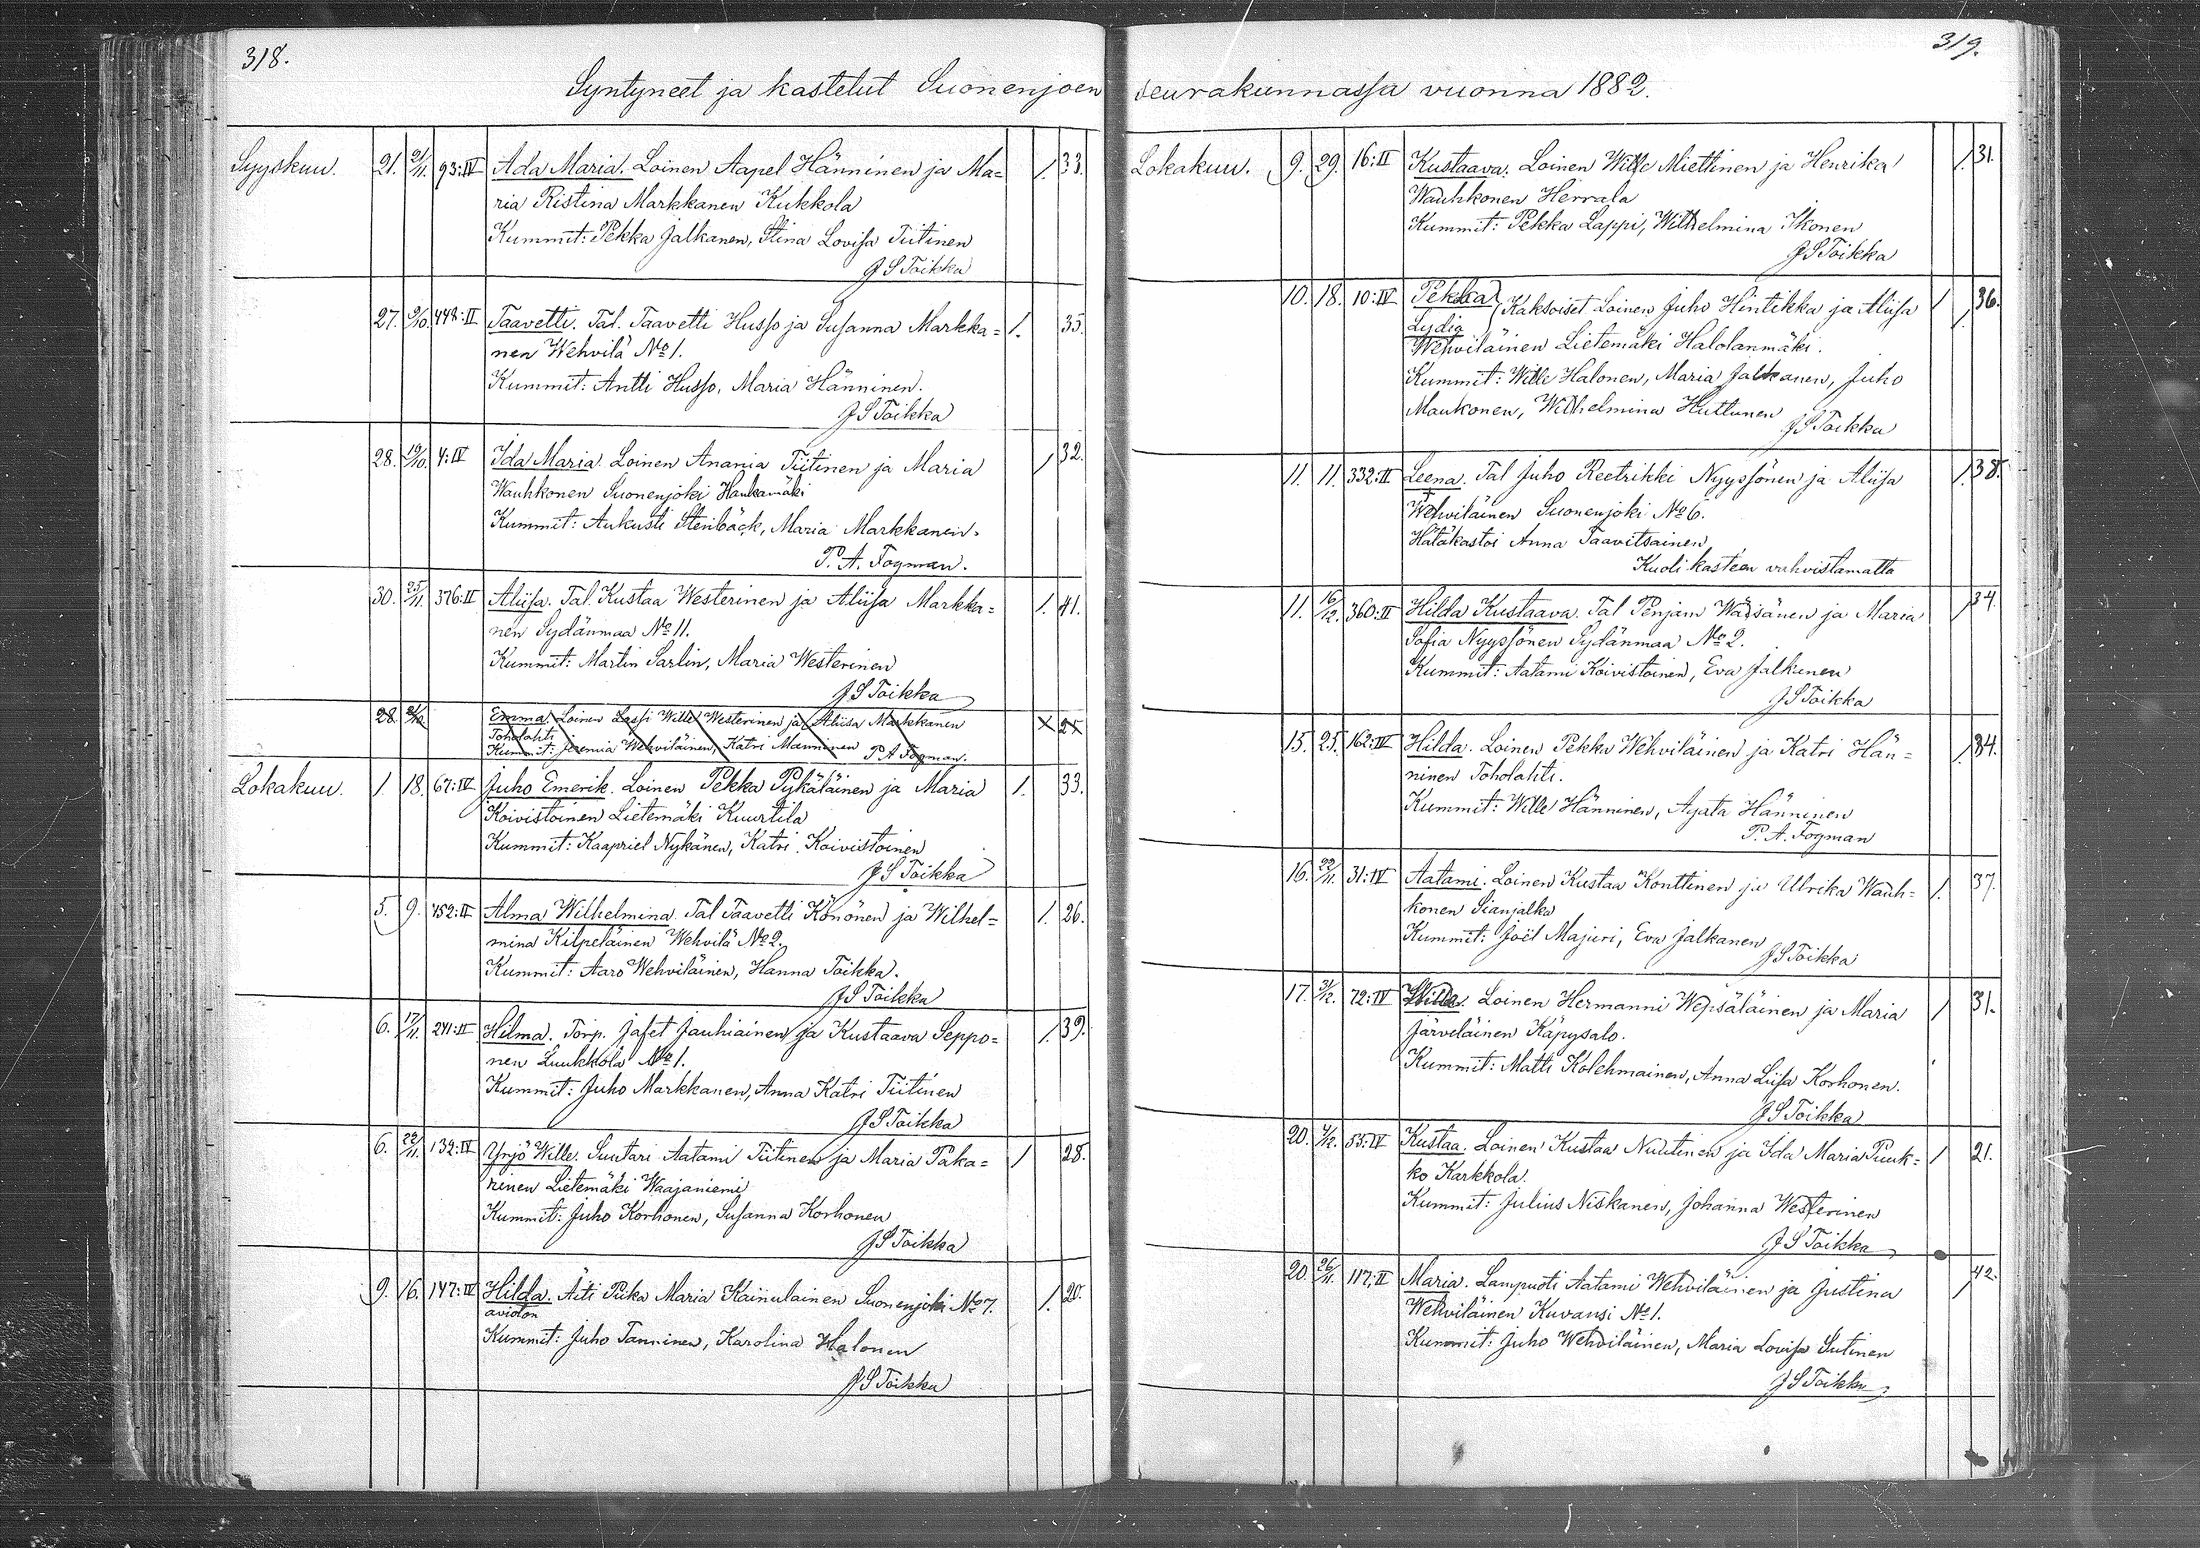 318.
Syntyneet ja kastetut Suonenjoen
Syyskuu. 21. 21/11. 93:IV Ada Maria. Loinen Aapel Hänninen ja Ma= 1. 33.
ria Ristina Markkanen Kukkola
Kummit: Pekka Jalkanen, Stina Lovisa Tiitinen
J S Toikka
27. 9/10. 448:II Taavetti. Tal. Taavetti Husso ja Susanna Markka= 1. 35.
nen Wehvilä No 1.
Kummit: Antti Husso, Maria Hänninen.
J S Toikka
28. 19/10. 4:IV Ida Maria. Loinen Anania Tiitinen ja Maria 1 32.
Wauhkonen Suonenjoki Haukamäki
Kummit: Aukusti Stenbäck, Maria Markkanen.
P. A. Fogman.
30. 25/11. 376:II Aliisa. Tal. Kustaa Westerinen ja Aliisa Markka= 1. 41.
nen Sydänmaa No 11.
Kummit: Martin Sarlin, Maria Westerinen
J S Toikka
28. Emma. Loinen Lassi Wille Westerinen ja Aliisa Markkanen 25
Toholahti
Kummit: Jeremia Wehviläinen, Katri Manninen P A Fogman.
Lokakuu. 1. 18. 67:IV Juho Emerik. Loinen Pekka Pykäläinen ja Maria 1. 33.
Koivistoinen Lietemäki Kuurtila
Kummit: Kaapriel Nykänen, Katri Koivistoinen
J S Toikka
5. 9. 452:II Alma Wilhelmina. Tal Taavetti Könönen ja Wilhel= 1. 26.
mina Kilpeläinen Wehvilä No 2.
Kummit: Aaro Wehviläinen, Hanna Toikka.
J S Toikka
6. 17/11. 241:II Hilma. Torp. Jafet Jauhiainen ja Kustaava Seppo= 1. 39.
nen Luukkola No 1.
Kummit: Juho Markkanen, Anna Katri Tiitinen
J S Toikka
6. 22/11. 132:IV Yrjö Wille. Suutari Aatami Tiitinen ja Maria Paka= 1 28.
rinen Lietemäki Waajaniemi
Kummit: Juho Korhonen, Susanna Korhonen
J S Toikka
9. 16. 147:IV Hilda. Äiti Piika Maria Kainulainen Suonenjoki No 7. 1. 20.
avioton
Kummit: Juho Tanninen, Karolina Halonen
J S Toikka
319.
seurakunnassa vuonna 1882.
Lokakuu. 9. 29. 16:II Kustaava. Loinen Wille Miettinen ja Henrika 1. 31.
Wauhkonen Herrala
Kummit: Pekka Lappi, Wilhelmina Ikonen
J S Toikka
10. 18. 10:IV Pekka (Kaksoiset. Loinen Juho Hintikka ja Aliisa 1 1. 36.
Lydia
Wehviläinen Lietemäki Halolanmäki.
Kummit: Wille Halonen, Maria Jalkanen, Juho
Maukonen, Wilhelmina Huttunen
J S Toikka
11. 11. 332:II Leena. Tal Juho Reetrikki Nyyssönen ja Aliisa 1. 38.
Wehviläinen Suonenjoki No 6.
Hätäkastoi Anna Taavitsainen
Kuoli kasteen vahvistamatta
11. 16/12. 360:II Hilda Kustaava. Tal Penjam Wäisänen ja Maria 1 34.
Sofia Nyyssönen Sydänmaa No 2.
Kummit: Aatami Koivistoinen, Eva Jalkanen
J S Toikka
15. 25. 162:IV Hilda. Loinen Pekka Wehviläinen ja Katri Hän= 1. 34.
ninen Toholahti.
Kummit: Wille Hänninen, Agata Hänninen
P. A. Fogman
16. 22/11. 31:IV Aatami. Loinen Kustaa Konttinen ja Ulrika Wauh= 1. 37.
konen Sianjalka
Kummit: Joël Majuri, Eva Jalkanen
J S Toikka
17. 3/12. 72:IV Wille. Loinen Hermanni Wepsäläinen ja Maria 1 31.
Järveläinen Käpysalo.
Kummit: Matti Kolehmainen, Anna Liisa Korhonen.
J S Toikka
20. 55:IV Kustaa. Loinen Kustaa Nuutinen ja Ida Maria Puuk= 1 21.
ko Karkkola.
Kummit: Julius Niskanen, Johanna Westerinen
J S Toikka
20. 26/11. 117:II Maria. Lampuoti Aatami Wehviläinen ja Justina 1 42.
Wehviläinen Kuvansi No 1.
Kummit: Juho Wehviläinen, Maria Lovisa Sutinen
J S Toikka